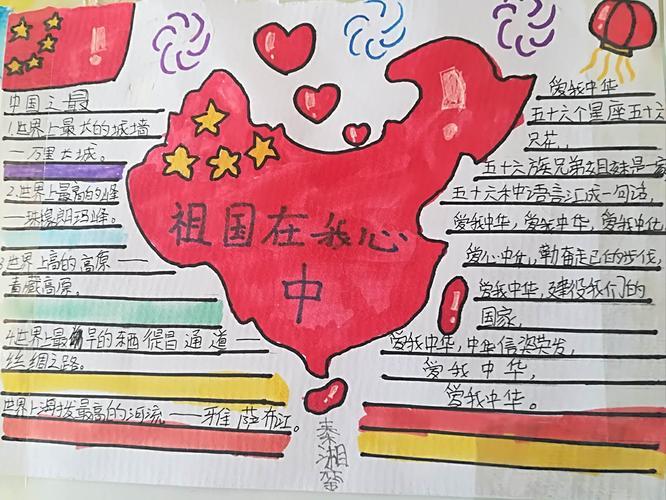 中国之最
1.世界上最长的城墙
—万里长城。
2.世界上最高的山峰
——珠穆朗玛峰。
3.世界上高的高原——
青藏高原。
4.世界上最早的
通道—
丝绸之路。
世界上海拔最高的河流——雅
布江。
祖国在我心
中
爱我中华
五十六个星座五十六
只花,
五十六族兄弟姐妹是一家
五十六种语言汇成一句话,
爱我中华,爱我中华,爱我中华
爱我中华,建设我们的
国家,
爱我中华,中华
爱我中华,
爱我中华。
秦湘